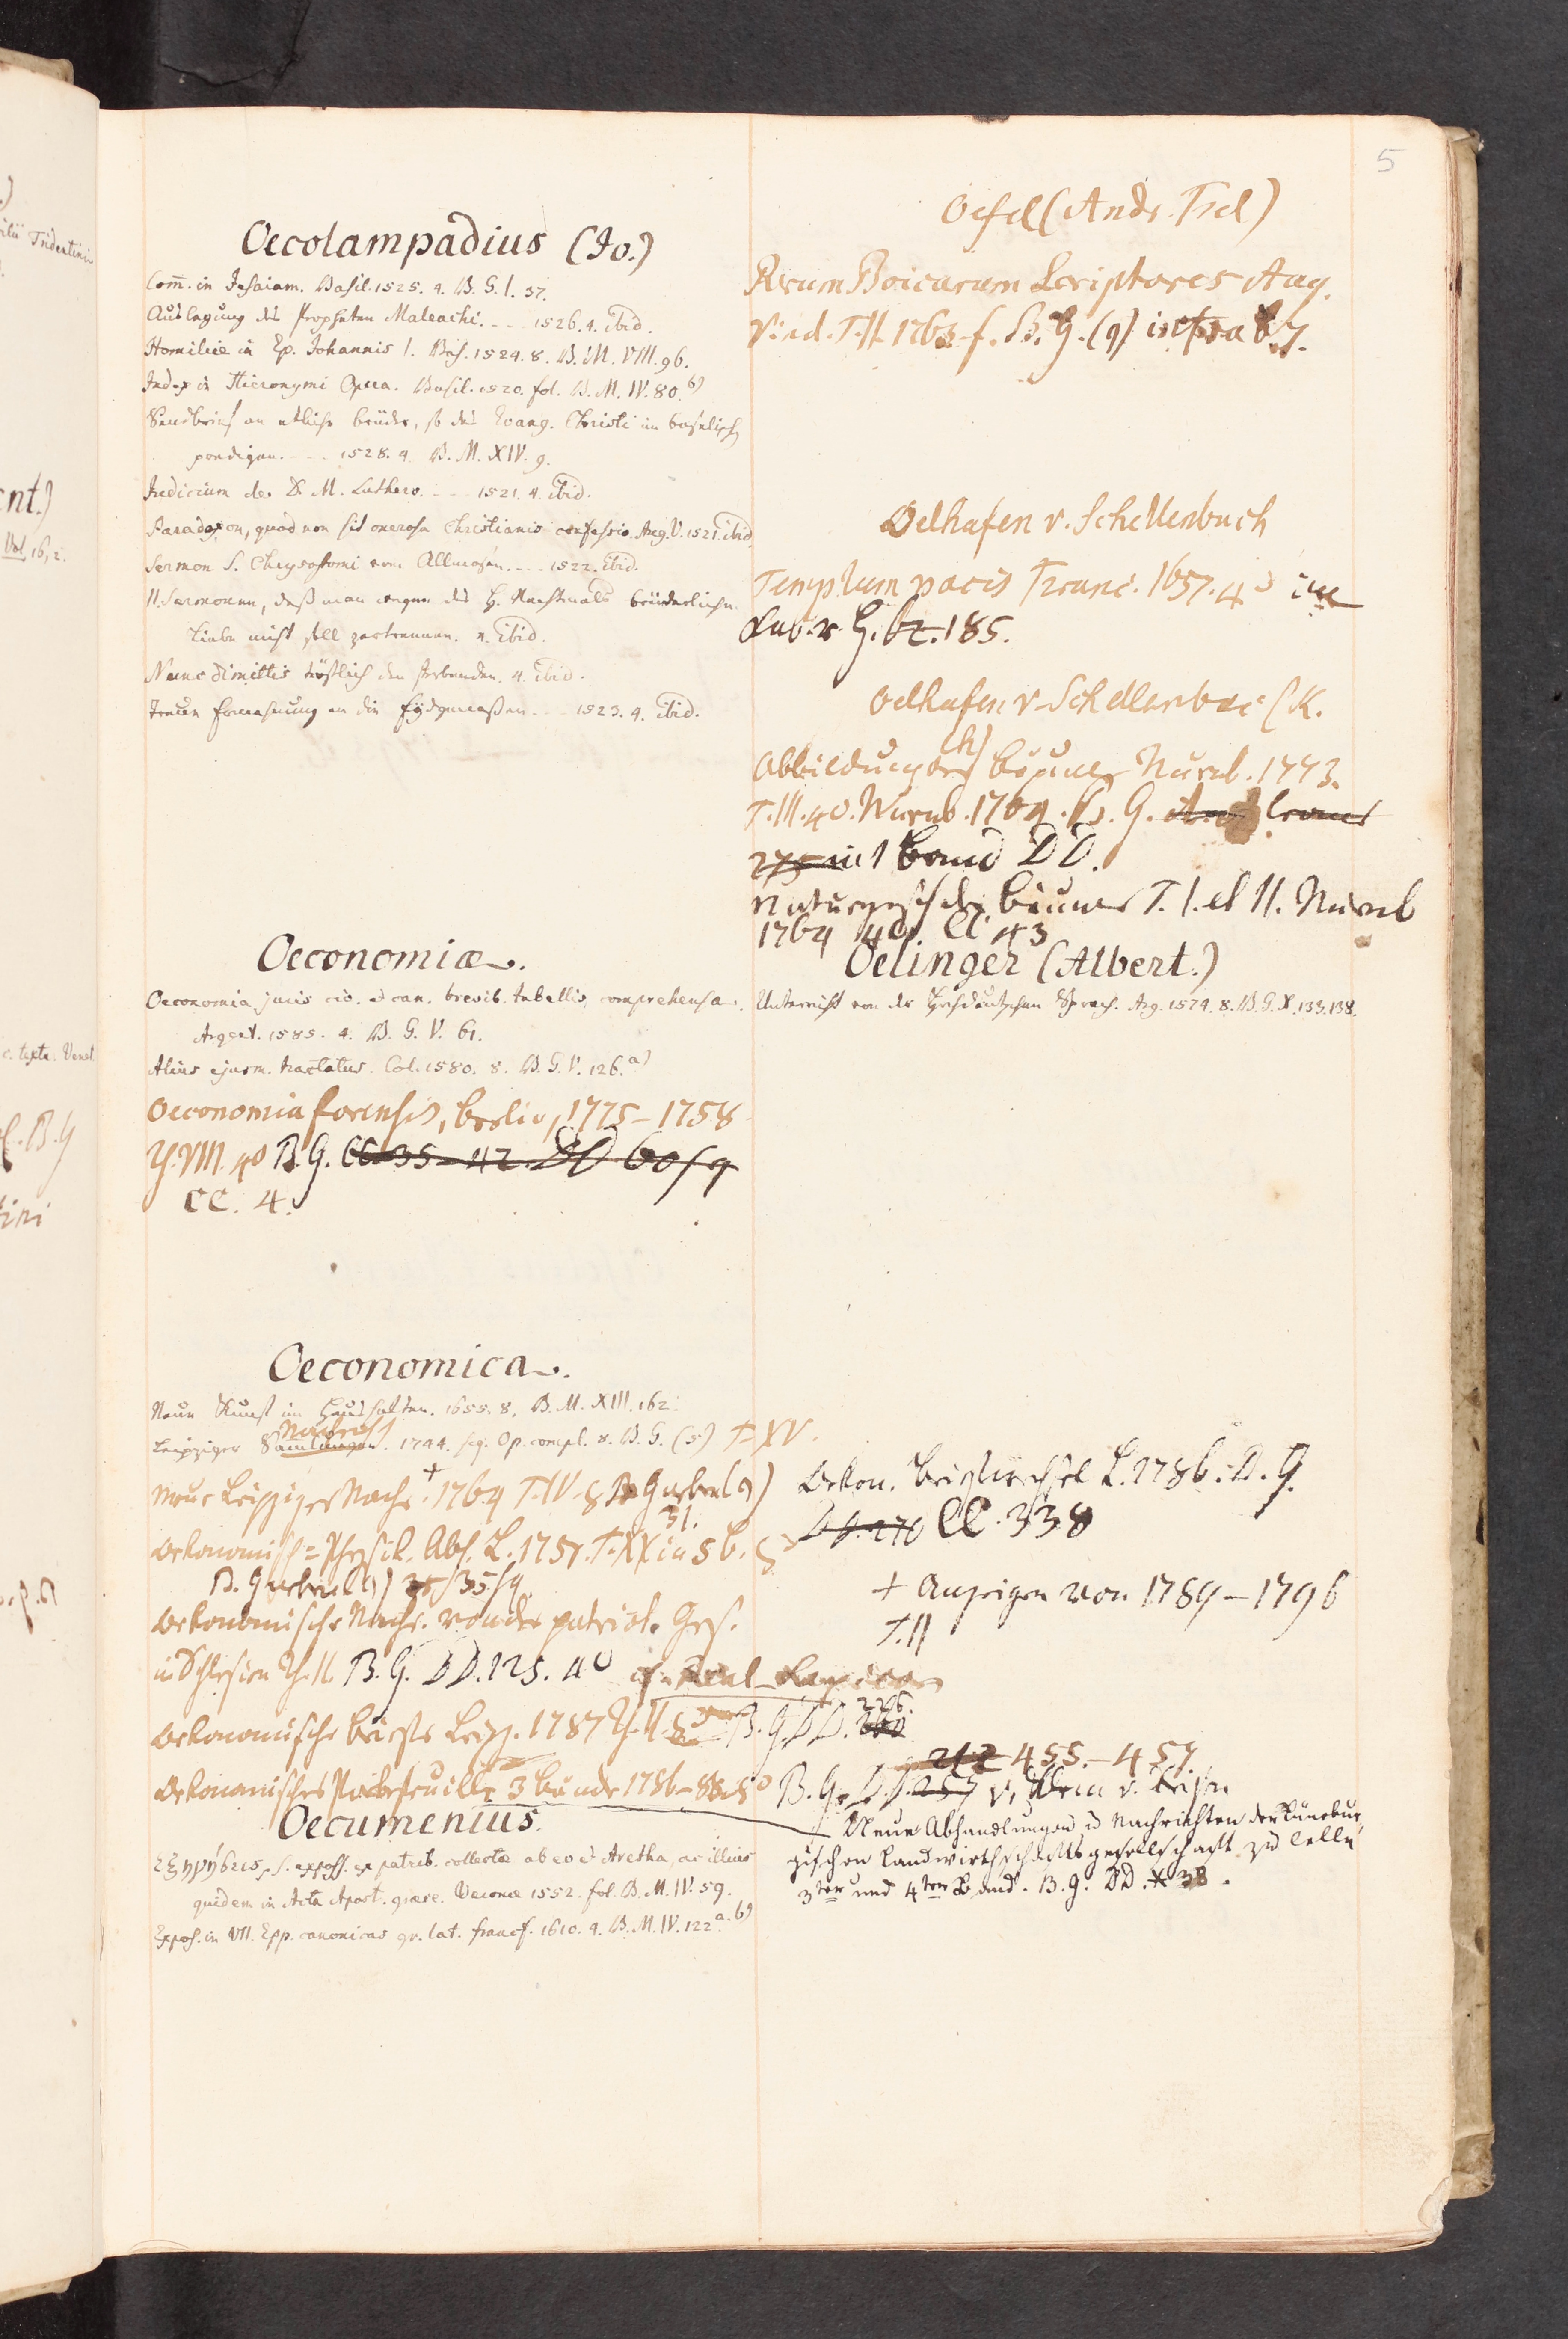 5
Oecolampadius (Jo.)
Com̄. in Jesaiam. Basil. 1525. 4. B. G. I. 37.
Auslegung des Propheten Maleachi. - - - 1526. 4. ibid.
Homiliæ in Ep. Johannis I. Bas. 1524. 8. B. M. VIII. 96.
Index in Hieronymi Opera. Basil. 1520. fol. B. M. IV. 80. b)
Sendbrief an etliche brüder, so das Evang. Christi im
predigen. - - - 1528. 4. B. M. XIV. 9.
Judicium de D. M. Luthero. - - - 1521. 4. ibid.
Paradoxon, quod non sit onerosa Christianis confessio. Aug. V. 1521. ibid.
Sermon S. Chrysostomi vom Allmosen. - - - 1522. ibid.
II. Sermonen, daß man wegen des H. Nachtmals brüderliche
Liebe nicht soll zertrennen. 4. ibid.
Nunc dimittis tröstlich den sterbenden. 4. ibid.
Treuen Ermahnung an die Eydgenoßen - - - 1523. 4. ibid.
Oeconomia.
Oeconomia juris civ. et can. brevib. tabellis comprehensa.
Argent. 1585. 4. B. G. V. 61.
Alius ejusm. tractatus. Col. 1580. 8. B. G. V. 126. a)
Oeconomia forensis, Berlin, 1775-1758
Th. VIII. 4o B. G. CC 35-42. DD 60 sq
CC. 4.
Oeconomica.
Neue Kunst im Haushalten. 1655. 8. B. M. XIII. 162.
Nachricht
Leipziger Samlungen. 1744. sq. Op. compl. 8. B. G. (5) T. XV.
Neue Leipziger Nachr. + 1764 T. IV. 8 B. G
31.
Oekonomisch=Physik. Abh. L. 1751. T. XX in 5 b. 8o
B. G 35 sq
Oekonomische Nachr. von der patriot. Ges.
in Schlesien Th. II. B. G. DD. 125. 4o
Oekonomische briefe Leipz. 1787 Th. II. 8o B. G. DD.
Oekonomisches Portefeuille 3 Bände 1786-88. 8o B. G. DD. 257
212 455-457
Oecumenius.
s. exposs. ex patrib. collectæ ab eo et Aretha, ac illius
quidem in Acta Apost. græce. Veronæ 1552. fol. B. M. IV. 59.
Expos. in VII. Epp. canonicas gr. lat. Francf. 1610. 4. B. M. IV. 122 a. b)
Oefel (Andr. Fel)
Rerum Boicarum Scriptores Aug.
Vind. T. II. 1763. f. B. G. (9) infra
Oelhafen v. Schellenbach
Templum pacis Franc. 1657. 4o im
Cub. v. G. 62. 185.
Oelhafen v. Schellenbac (K.
h)
Abbildung der Bäume Nürnb. 1773.
T. III. 4o. Nürnb. 1764. B. G.
275 in 1 Band DD.
Naturgesch der Bäume T. I. et II. Nürnb
1764 4o CC 43
Oelinger (Albert.)
Unterricht von der Hochdeutschen Sprach. Arg. 1574. 8. B. G. X. 133. 138.
Oekon. Briefwechsel L. 1786. B. G.
DD. 270 CC. 338
+ Anzeigen von 1789-1796
T. II
Neue Abhandlungen u Nachrichten der Lünebur
gischen Landwirthschaftsgesellschaft zu Celle
3ter und 4ter Band. B. G. DD. 38.